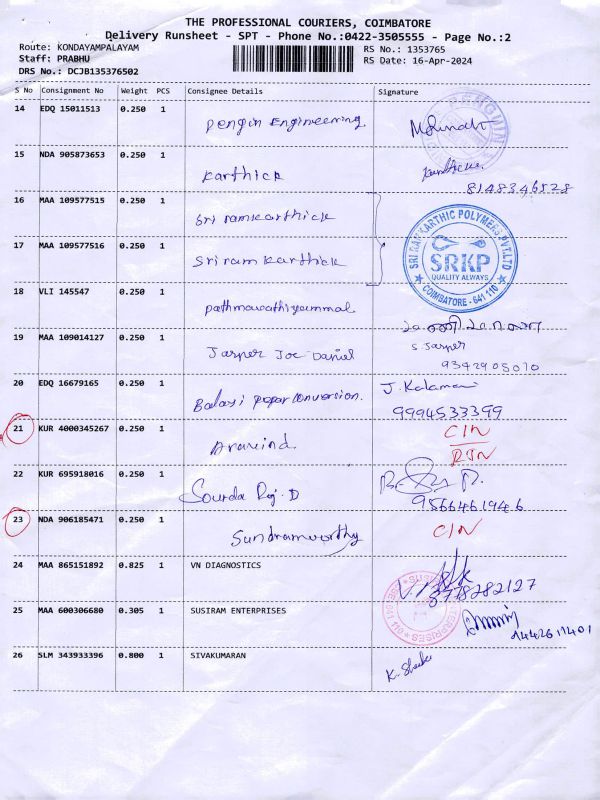 THE PROFESSIONAL COURIERS, COIMBATORE
Delivery Runsheet - SPT - Phone No.:0422-3505555 - Page No.:2
Route: KONDAYAMPALAYAM
RS No.: 1353765
Staff: PRABHU
RS Date: 16-Apr-2024
DRS No.: DCJB135376502
S No Consignment No Weight PCS Consignee Details Signature
14 EDQ 15011513 0.250 1 Pengin Engineering
PENGUIN
15 NDA 905873653 0.250 1 Karthick
8148346528
16 MAA 109577515 0.250 1 Sri ramkarthick
17 MAA 109577516 0.250 1 Sriram karthick
SRI RAMKARTHIC POLYMERS PVT.LTD
SRKP
QUALITY ALWAYS
COIMBATORE - 641 110
18 VLI 145547 0.250 1 pathmavathiyammal
19 MAA 109014127 0.250 1 Jarper Joe Daniel S. Jasper
9342905070
20 EDQ 16679165 0.250 1 Balaji paper conversion. J. Kalamani
9994533399
21 KUR 4000345267 0.250 1 Aravind CIN
22 KUR 695918016 0.250 1 Sourda Raj. D
9566461946
23 NDA 906185471 0.250 1 Sundramoorthy CIN
24 MAA 865151892 0.825 1 VN DIAGNOSTICS
8778282127
25 MAA 600306680 0.305 1 SUSIRAM ENTERPRISES
26 SLM 343933396 0.800 1 SIVAKUMARAN